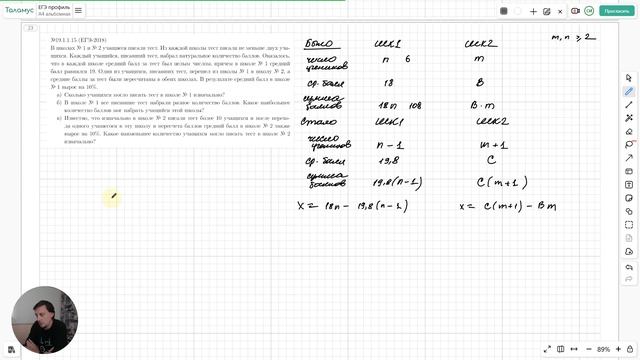 Таламус
ЕГЭ профиль
А4 альбомная
89%
Пригласить
23
№19.1.1.15 (ЕГЭ-2018)
В школах № 1 и № 2 учащиеся писали тест. Из каждой школы тест писали не меньше двух уча-
щихся. Каждый учащийся, писавший тест, набрал натуральное количество баллов. Оказалось,
что в каждой школе средний балл за тест был целым числом, причем в школе № 1 средний
балл равнялся 19. Один из учащихся, писавший тест, перешел из школы № 1 в школу № 2, а
средние баллы за тест были пересчитаны в обеих школах. В результате средний балл в школе
№ 1 вырос на 10%.
а) Сколько учащихся могло писать тест в школе № 1 изначально?
б) В школе № 1 все писавшие тест набрали разное количество баллов. Какое наибольшее
количество баллов мог набрать учащийся этой школы?
в) Известно, что изначально в школе № 2 писали тест более 10 учащихся и после перехо-
да одного учащегося в эту школу и пересчета баллов средний балл в школе № 2 также
вырос на 10%. Какое наименьшее количество учащихся могло писать тест в школе № 2
изначально?
m, n ⩾ 2
Было шк1 шк2
число учеников n 6 m
ср. балл 18 B
сумма баллов 18n 108 B·m
стало шк1 шк2
число учеников n-1 m+1
ср. балл 19,8 C
сумма баллов 19,8(n-1) C(m+1)
x = 18n - 19,8(n-1) x = C(m+1) - Bm